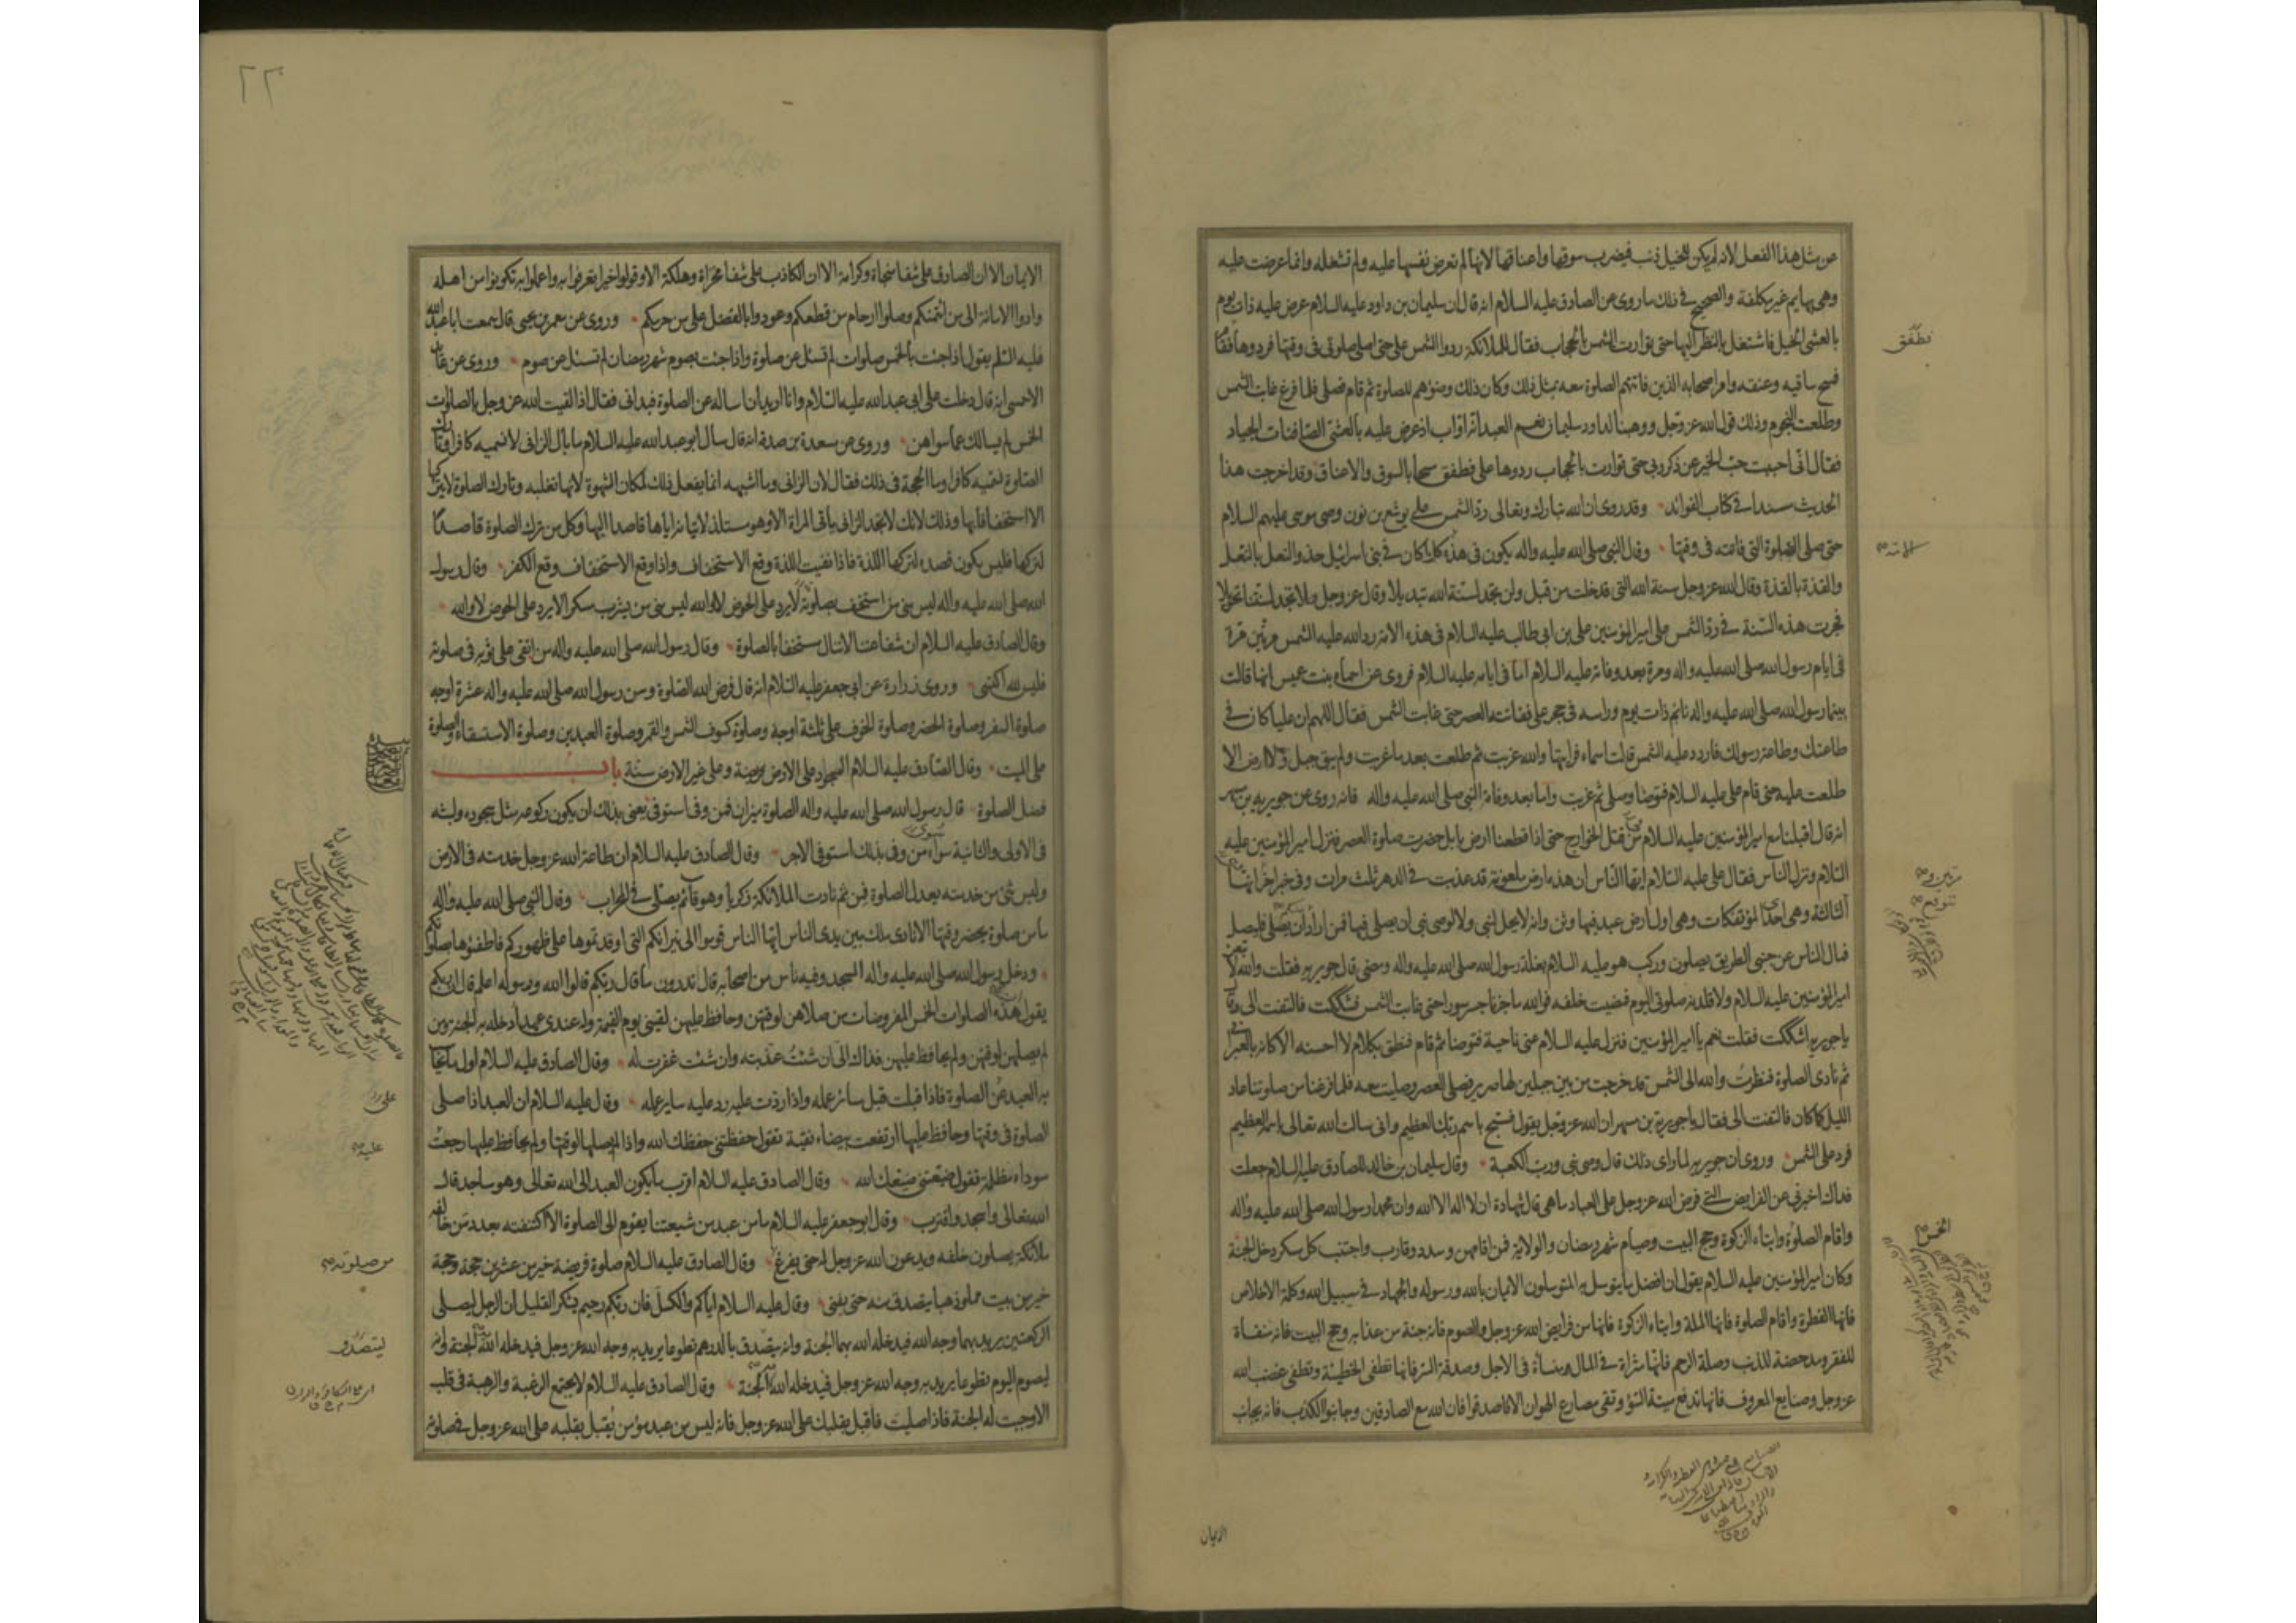 من مثل هذا الفعل لانه لم يكن للخيل ذنب فيضرب سوقها واعناقها لانها لم تعرض نفسها عليه ولم تشغله وانما عرضت عليه
وهى بهايم غير مكلفة والصحيح فى ذلك ما روى عن الصادق عليه السلام انه قال ان سليمان بن داود عليه السلام عرض عليه ذات يوم
بالعشى الخيل فاشتغل بالنظر اليها حتى توارت الشمس بالحجاب فقال للملائكة ردوا الشمس على حتى اصلى صلوتى فى وقتها فردوها فقام
فمسح ساقيه وعنقه وامر اصحابه الذين فاتتهم الصلوة معه بمثل ذلك وكان ذلك وضوءهم للصلوة ثم قام فصلى فلما فرغ غابت الشمس
وطلعت النجوم وذلك قول الله عز وجل ووهبنا لداود سليمان نعم العبد انه اواب اذ عرض عليه بالعشى الصافنات الجياد
فقال انى احببت حب الخير عن ذكر ربى حتى توارت بالحجاب ردوها على فطفق مسحا بالسوق والاعناق وقد اخرجت هذا
الحديث مسندا فى كتاب الفوائد وقد روى ان الله تبارك وتعالى رد الشمس على يوشع بن نون وصى موسى عليهم السلام
حتى صلى الصلوة التى فاتته فى وقتها وقال النبى صلى الله عليه واله يكون فى هذه كل ما كان فى بنى اسرائيل حذو النعل بالنعل
والقذة بالقذة وقال الله عز وجل سنة الله التى قد خلت من قبل ولن تجد لسنة الله تبديلا وقال عز وجل ولا تجد لسنتنا تحويلا
فجرت هذه السنة فى رد الشمس على امير المؤمنين على بن ابى طالب عليه السلام فى هذه الامة رد الله عليه الشمس مرتين مرة
فى ايام رسول الله صلى الله عليه واله ومرة بعد وفاته عليه السلام اما فى ايامه عليه السلام فروى عن اسماء بنت عميس انها قالت
بينما رسول الله صلى الله عليه واله نائم ذات يوم وراسه فى حجر على ففاتته العصر حتى غابت الشمس فقال اللهم ان عليا كان فى
طاعتك وطاعة رسولك فاردد عليه الشمس قالت اسماء فرايتها والله غربت ثم طلعت بعد ما غربت ولم يبق جبل ولا ارض الا
طلعت عليه حتى قام على عليه السلام فتوضا وصلى ثم غربت واما بعد وفاة النبى صلى الله عليه واله فانه روى عن جويرية بن مسهر
انه قال اقبلنا مع امير المؤمنين عليه السلام من قتل الخوارج حتى اذا قطعنا ارض بابل حضرت صلوة العصر فنزل امير المؤمنين عليه
السلام ونزل الناس فقال على عليه السلام ايها الناس ان هذه ارض ملعونة قد عذبت فى الدهر ثلث مرات وفى خبر اخر
الثالثة وهى احدى المؤتفكات وهى اول ارض عبد فيها وثن وانه لا يحل لنبى ولا لوصى نبى ان يصلى فيها فمن اراد ان يصلى فليصل
فمال الناس عن جنبى الطريق يصلون وركب هو عليه السلام بغلة رسول الله صلى الله عليه واله ومضى قال جويرية فقلت والله
امير المؤمنين عليه السلام ولاقلدنه صلوتى اليوم فمضيت خلفه فوالله ما جزنا جسر سورا حتى غابت الشمس فشككت فالتفت الى وقال
يا جويرية اشككت فقلت نعم يا امير المؤمنين فنزل عليه السلام عن ناحية فتوضا ثم قام فنطق بكلام لا احسنه الا كانه بالعبرانى
ثم نادى الصلوة فنظرت والله الى الشمس قد خرجت من بين جبلين لها صرير فصلى العصر وصليت معه فلما فرغنا من صلوتنا عاد
الليل كما كان فالتفت الى فقال يا جويرية بن مسهر ان الله عز وجل يقول فسبح باسم ربك العظيم وانى سالت الله تعالى باسمه العظيم
فرد على الشمس وروى ان جويرية لما راى ذلك قال وصى نبى ورب الكعبة وقال سليمان بن خالد للصادق عليه السلام جعلت
فداك اخبرنى عن الفرايض التى فرض الله عز وجل على العباد ما هى قال شهادة ان لا اله الا الله وان محمدا رسول الله صلى الله عليه واله
واقام الصلوة وايتاء الزكوة وحج البيت وصيام شهر رمضان والولاية فمن اقامهن وسدد وقارب واجتنب كل مسكر دخل الجنة
وكان امير المؤمنين عليه السلام يقول ان افضل ما يتوسل به المتوسلون الايمان بالله ورسوله والجهاد فى سبيل الله وكلمة الاخلاص
فانها الفطرة واقام الصلوة فانها الملة وايتاء الزكوة فانها من فرايض الله عز وجل والصوم فانه جنة من عذابه وحج البيت فانه منفاة
للفقر ومدحضة للذنب وصلة الرحم فانها مثراة فى المال ومنساة فى الاجل وصدقة السر فانها تطفى الخطيئة وتطفى غضب الله
عز وجل وصنايع المعروف فانها تدفع ميتة السوء وتقى مصارع الهوان الا فاصدقوا فان الله مع الصادقين وجانبوا الكذب فانه يجانب
الايمان
فطفق
الامة
الخمس
٢٢
الايمان الا ان الصادق على شفا منجاة وكرامة الا ان الكاذب على شفا مخزاة وهلكة الا وقولوا خيرا تعرفوا به واعملوا به تكونوا من اهله
وادوا الامانة الى من ائتمنكم وصلوا ارحام من قطعكم وعودوا بالفضل على من حرمكم وروى عن معمر بن يحيى قال سمعت ابا عبد الله
عليه السلم يقول اذا جئت بالخمس صلوات لم تسئل عن صلوة واذا جئت بصوم شهر رمضان لم تسئل عن صوم وروى عن عائذ
الاحمسى انه قال دخلت على ابى عبد الله عليه السلام وانا اريد ان اساله عن الصلوة فبدانى فقال اذا لقيت الله عز وجل بالصلوت
الخمس لم يسالك عما سواهن وروى عن مسعدة بن صدقة انه قال سال ابو عبد الله عليه السلام ما بال الزانى لا تسميه كافرا وتارك
الصلوة تسميه كافرا وما الحجة فى ذلك فقال لان الزانى وما اشبهه انما يفعل ذلك لمكان الشهوة لانها تغلبه وتارك الصلوة لا يتركها
الا استخفافا بها وذلك لانك لا تجد الزانى ياتى المراة الا وهو مستلذ لاتيانه اياها قاصدا اليها وكل من ترك الصلوة قاصدا
لتركها فليس يكون قصده لتركها اللذة فاذا نفيت اللذة وقع الاستخفاف واذا وقع الاستخفاف وقع الكفر وقال رسول
الله صلى الله عليه واله ليس منى من استخف بصلوته لا يرد على الحوض لا والله ليس منى من يشرب مسكرا لا يرد على الحوض لا والله
وقال الصادق عليه السلام ان شفاعتنا لا تنال مستخفا بالصلوة وقال رسول الله صلى الله عليه واله من اتقى على ثوبه فى صلوته
فليس لله اكتسى وروى زرارة عن ابى جعفر عليه السلام انه قال فرض الله الصلوة وسن رسول الله صلى الله عليه واله عشرة اوجه
صلوة السفر وصلوة الحضر وصلوة الخوف على ثلثة اوجه وصلوة كسوف الشمس والقمر وصلوة العيدين وصلوة الاستسقاء والصلوة
على الميت وقال الصادق عليه السلام السجود على الارض فريضة وعلى غير الارض سنة باب
فضل الصلوة قال رسول الله صلى الله عليه واله الصلوة ميزان فمن وفى استوفى يعنى بذلك ان يكون ركوعه مثل سجوده ولبثه
فى الاولى والثانية سواء من وفى بذلك استوفى الاجر وقال الصادق عليه السلام ان طاعة الله عز وجل خدمته فى الارض
وليس شئ من خدمته يعدل الصلوة فمن ثم نادت الملائكة زكريا وهو قائم يصلى فى المحراب وقال النبى صلى الله عليه واله
ما من صلوة يحضر وقتها الا نادى ملك بين يدى الناس ايها الناس قوموا الى نيرانكم التى اوقدتموها على ظهوركم فاطفئوها بصلوتكم
ودخل رسول الله صلى الله عليه واله المسجد وفيه ناس من اصحابه قال تدرون ما قال ربكم قالوا الله ورسوله اعلم قال ان ربكم
يقول هذه الصلوات الخمس المفروضات من صلاهن لوقتهن وحافظ عليهن لقينى يوم القيمة وله عندى عهد ادخله به الجنة ومن
لم يصلهن لوقتهن ولم يحافظ عليهن فذاك الى ان شئت عذبته وان شئت غفرت له وقال الصادق عليه السلام اول ما يحاسب
به العبد عن الصلوة فاذا قبلت قبل سائر عمله واذا ردت عليه رد عليه ساير عمله وقال عليه السلام ان العبد اذا صلى
الصلوة فى وقتها وحافظ عليها ارتفعت بيضاء نقية تقول حفظتنى حفظك الله واذا لم يصلها لوقتها ولم يحافظ عليها رجعت
سوداء مظلمة تقول ضيعتنى ضيعك الله وقال الصادق عليه السلام اقرب ما يكون العبد الى الله تعالى وهو ساجد قال
الله تعالى واسجد واقترب وقال ابو جعفر عليه السلام ما من عبد من شيعتنا يقوم الى الصلوة الا اكتنفته بعدد من خالفه
ملائكة يصلون خلفه ويدعون الله عز وجل له حتى يفرغ وقال الصادق عليه السلام صلوة فريضة خير من عشرين حجة وحجة
خير من بيت مملو ذهبا يتصدق منه حتى يفنى وقال عليه السلام اياكم والكسل فان ربكم رحيم يشكر القليل ان الرجل ليصلى
الركعتين يريد بهما وجه الله فيدخله الله بهما الجنة وانه يتصدق بالدرهم تطوعا يريد به وجه الله عز وجل فيدخله الله به الجنة وانه
ليصوم اليوم تطوعا يريد به وجه الله عز وجل فيدخله الله به الجنة وقال الصادق عليه السلام لا يجتمع الرغبة والرهبة فى قلب
الا وجبت له الجنة فاذا صليت فاقبل بقلبك على الله عز وجل فانه ليس من عبد مؤمن يقبل بقلبه على الله عز وجل فى صلوته
على
عليه
من صلوته
ليتصدق